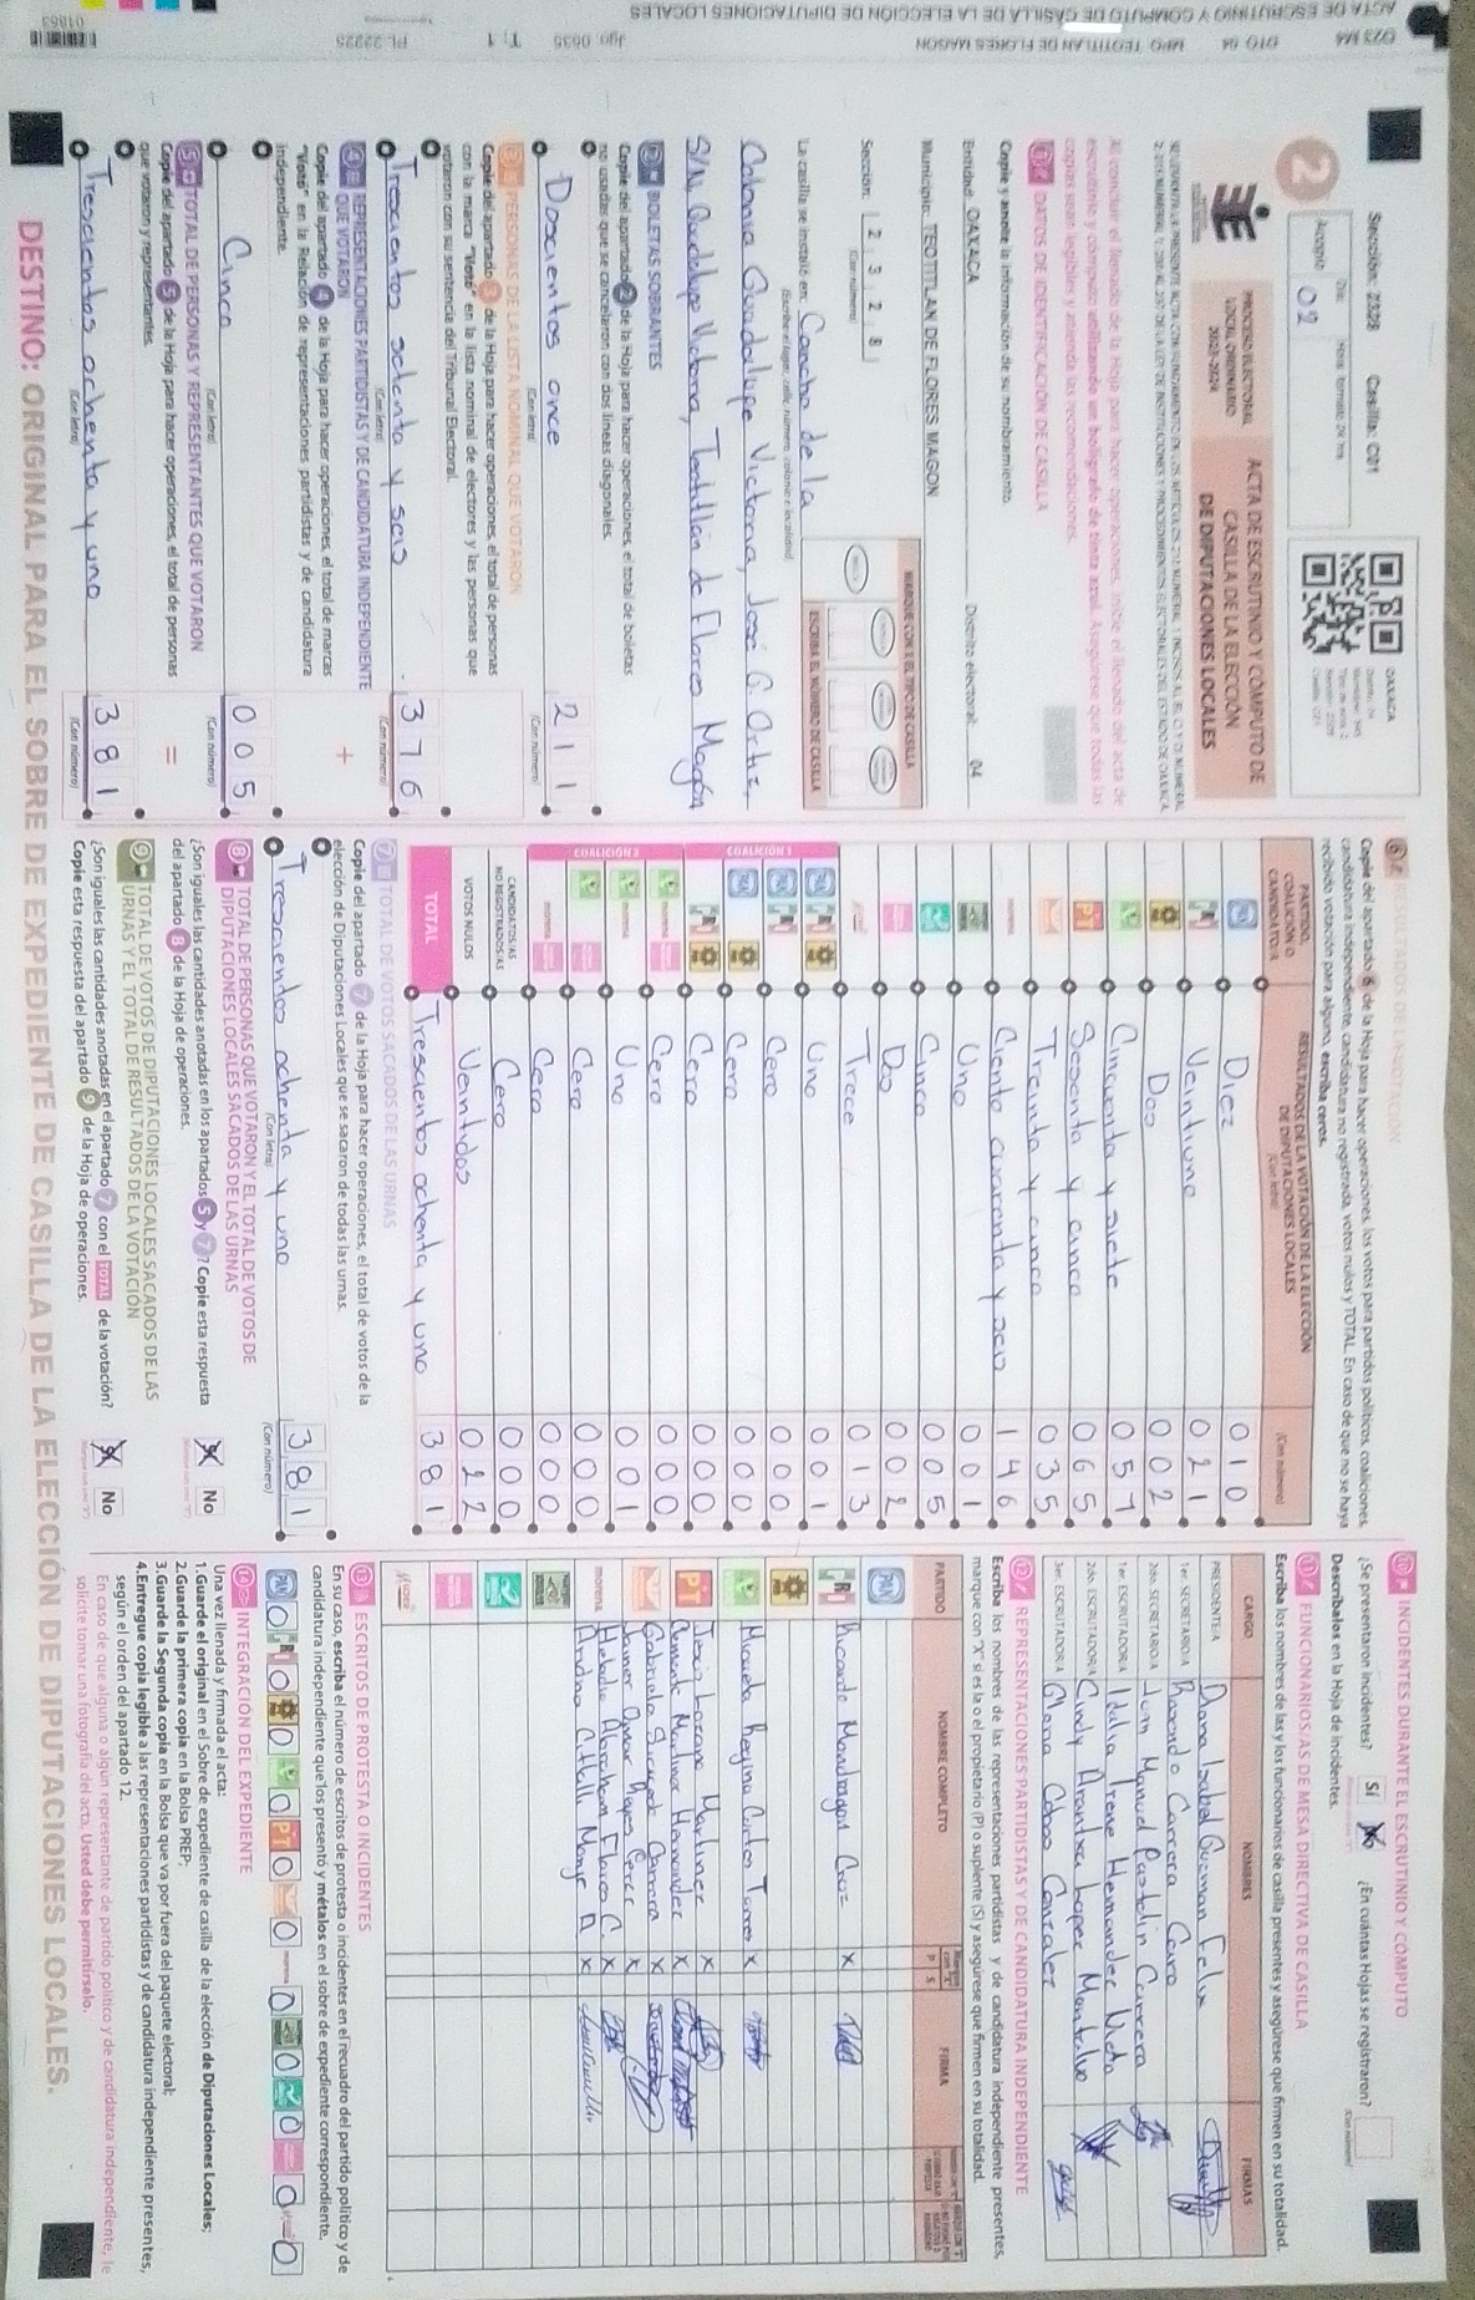 Sección: 2328 Casilla: C01
2
Acopio
02
PROCESO ELECTORAL
LOCAL ORDINARIO
2023-2024
ACTA DE ESCRUTINIO Y CÓMPUTO DE
CASILLA DE LA ELECCIÓN
DE DIPUTACIONES LOCALES
OAXACA
Al concluir el llenado de la Hoja para hacer operaciones, inicie el llenado del acta de
escrutinio y cómputo utilizando un bolígrafo de tinta azul. Asegúrese que todas las
copias sean legibles y atienda las recomendaciones.
DATOS DE IDENTIFICACIÓN DE CASILLA
Copie y anote la información de su nombramiento.
Entidad: OAXACA Distrito electoral: 04
Municipio: TEOTITLAN DE FLORES MAGON
Sección: 2 3 2 8
(Con número)
MARQUE CON X EL TIPO DE CASILLA
ESCRIBA EL NÚMERO DE CASILLA
La casilla se instaló en: Cancha de la
(Escriba el lugar, calle, número, colonia o localidad)
Colonia Guadalupe Victoria, José G. Ortiz,
S/N, Guadalupe Victoria, Teotitlán de Flores Magón
2 BOLETAS SOBRANTES
Copie del apartado 2 de la Hoja para hacer operaciones, el total de boletas
no usadas que se cancelaron con dos líneas diagonales.
Doscientos once 211
(Con letra) (Con número)
3 PERSONAS DE LA LISTA NOMINAL QUE VOTARON
Copie del apartado 3 de la Hoja para hacer operaciones, el total de personas
con la marca "Votó" en la lista nominal de electores y las personas que
votaron con su sentencia del Tribunal Electoral.
Trescientos setenta y seis 376
(Con letra) (Con número)
4 REPRESENTACIONES PARTIDISTAS Y DE CANDIDATURA INDEPENDIENTE
QUE VOTARON
+
Copie del apartado 4 de la Hoja para hacer operaciones, el total de marcas
"Votó" en la Relación de representaciones partidistas y de candidatura
independiente.
Cinco 005
(Con letra) (Con número)
5 TOTAL DE PERSONAS Y REPRESENTANTES QUE VOTARON
=
Copie del apartado 5 de la Hoja para hacer operaciones, el total de personas
que votaron y representantes.
Trescientos ochenta y uno 381
(Con letra) (Con número)
6 RESULTADOS DE LA VOTACIÓN
Copie del apartado 6 de la Hoja para hacer operaciones, los votos para partidos políticos, coaliciones,
candidatura independiente, candidatura no registrada, votos nulos y TOTAL. En caso de que no se haya
recibido votación para alguno, escriba ceros.
PARTIDO,
COALICIÓN O
CANDIDATO/A
RESULTADOS DE LA VOTACIÓN DE LA ELECCIÓN
DE DIPUTACIONES LOCALES
(Con letra) (Con número)
PAN Diez 010
PRI Veintiuno 021
Dos 002
Cincuenta y siete 057
PT Sesenta y cinco 065
Treinta y cinco 035
morena Ciento cuarenta y seis 146
Uno 001
Cinco 005
Dos 002
Trece 013
COALICIÓN 1
Uno 001
Cero 000
Cero 000
Cero 000
COALICIÓN 2
Cero 000
Uno 001
Cero 000
Cero 000
CANDIDATOS/AS
NO REGISTRADOS/AS Cero 000
VOTOS NULOS Veintidos 022
TOTAL Trescientos ochenta y uno 381
7 TOTAL DE VOTOS SACADOS DE LAS URNAS
Copie del apartado 7 de la Hoja para hacer operaciones, el total de votos de la
elección de Diputaciones Locales que se sacaron de todas las urnas.
Trescientos ochenta y uno 381
(Con letra) (Con número)
8 TOTAL DE PERSONAS QUE VOTARON Y EL TOTAL DE VOTOS DE
DIPUTACIONES LOCALES SACADOS DE LAS URNAS
¿Son iguales las cantidades anotadas en los apartados 5 y 7? Copie esta respuesta
del apartado 8 de la Hoja de operaciones.
Sí No
9 TOTAL DE VOTOS DE DIPUTACIONES LOCALES SACADOS DE LAS
URNAS Y EL TOTAL DE RESULTADOS DE LA VOTACIÓN
¿Son iguales las cantidades anotadas en el apartado 7 con el TOTAL de la votación?
Copie esta respuesta del apartado 9 de la Hoja de operaciones.
Sí No
10 INCIDENTES DURANTE EL ESCRUTINIO Y CÓMPUTO
¿Se presentaron incidentes? Sí No ¿En cuántas Hojas se registraron?
(Con número)
Descríbalos en la Hoja de incidentes.
11 FUNCIONARIOS/AS DE MESA DIRECTIVA DE CASILLA
Escriba los nombres de las y los funcionarios de casilla presentes y asegúrese que firmen en su totalidad.
CARGO NOMBRES FIRMAS
PRESIDENTE/A Dana Isabel Guzman Felix
1er. SECRETARIO/A Rosendo Carrera Cauro
2do. SECRETARIO/A Juan Manuel Pastelin Carrera
1er. ESCRUTADOR/A Idalia Irene Hernandez Nieto
2do. ESCRUTADOR/A Cindy Arantxa Lopez Montalvo
3er. ESCRUTADOR/A Gloria Cobos Gonzalez
12 REPRESENTACIONES PARTIDISTAS Y DE CANDIDATURA INDEPENDIENTE
Escriba los nombres de las representaciones partidistas y de candidatura independiente presentes,
marque con "X" si es la o el propietario (P) o suplente (S) y asegúrese que firmen en su totalidad.
PARTIDO NOMBRE COMPLETO P S FIRMA
PAN
PRI Ricardo Mondragon Cruz X
Micaela Regina Cortes Torres X
PT Martinez X
Clemente Martinez Hernandez X
Gabriela Carrera X
Javier Omar Reyes X
morena Flores C. X
Andrea Citlalli Monge A X
13 ESCRITOS DE PROTESTA O INCIDENTES
En su caso, escriba el número de escritos de protesta o incidentes en el recuadro del partido político y de
candidatura independiente que los presentó y métalos en el sobre de expediente correspondiente.
PAN 0 PRI 0 0 0 PT 0 0 morena 0 0 0 0 0
14 INTEGRACIÓN DEL EXPEDIENTE
Una vez llenada y firmada el acta:
1.Guarde el original en el Sobre de expediente de casilla de la elección de Diputaciones Locales;
2.Guarde la primera copia en la Bolsa PREP;
3.Guarde la Segunda copia en la Bolsa que va por fuera del paquete electoral;
4.Entregue copia legible a las representaciones partidistas y de candidatura independiente presentes,
según el orden del apartado 12.
En caso de que alguna o algún representante de partido político y de candidatura independiente, le
solicite tomar una fotografía del acta, Usted debe permitírselo.
DESTINO: ORIGINAL PARA EL SOBRE DE EXPEDIENTE DE CASILLA DE LA ELECCIÓN DE DIPUTACIONES LOCALES.
ACTA DE ESCRUTINIO Y COMPUTO DE CASILLA DE LA ELECCION DE DIPUTACIONES LOCALES
DTO 04 MPIO TEOTITLAN DE FLORES MAGON Jgo. 0635 T: 1 PL 22225
01863